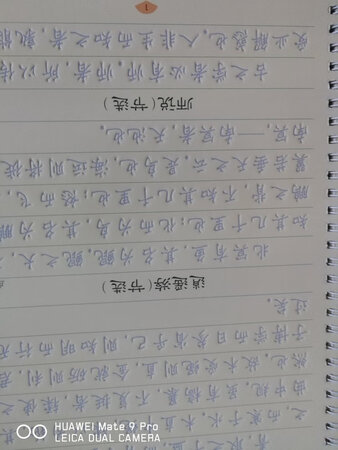 之，而寒于水。木直中
曲中规。虽有槁暴，不复挺者，輮使之
然也。故木受绳则直，金就砺则利，君
子博学而日参省乎己，则知明而行无
过矣。
逍遥游(节选)
北冥有鱼，其名为鲲。鲲之大，不
知其几千里也；化而为鸟，其名为鹏
鹏之背，不知其几千里也；怒而飞，
翼若垂天之云。是鸟也，海运则将徙
南冥，——南冥者，天池也。
师说(节选)
古之学者必有师。师者，所以传
受业解惑也。人非生而知之者，孰能
1
HUAWEI Mate 9 Pro
LEICA DUAL CAMERA